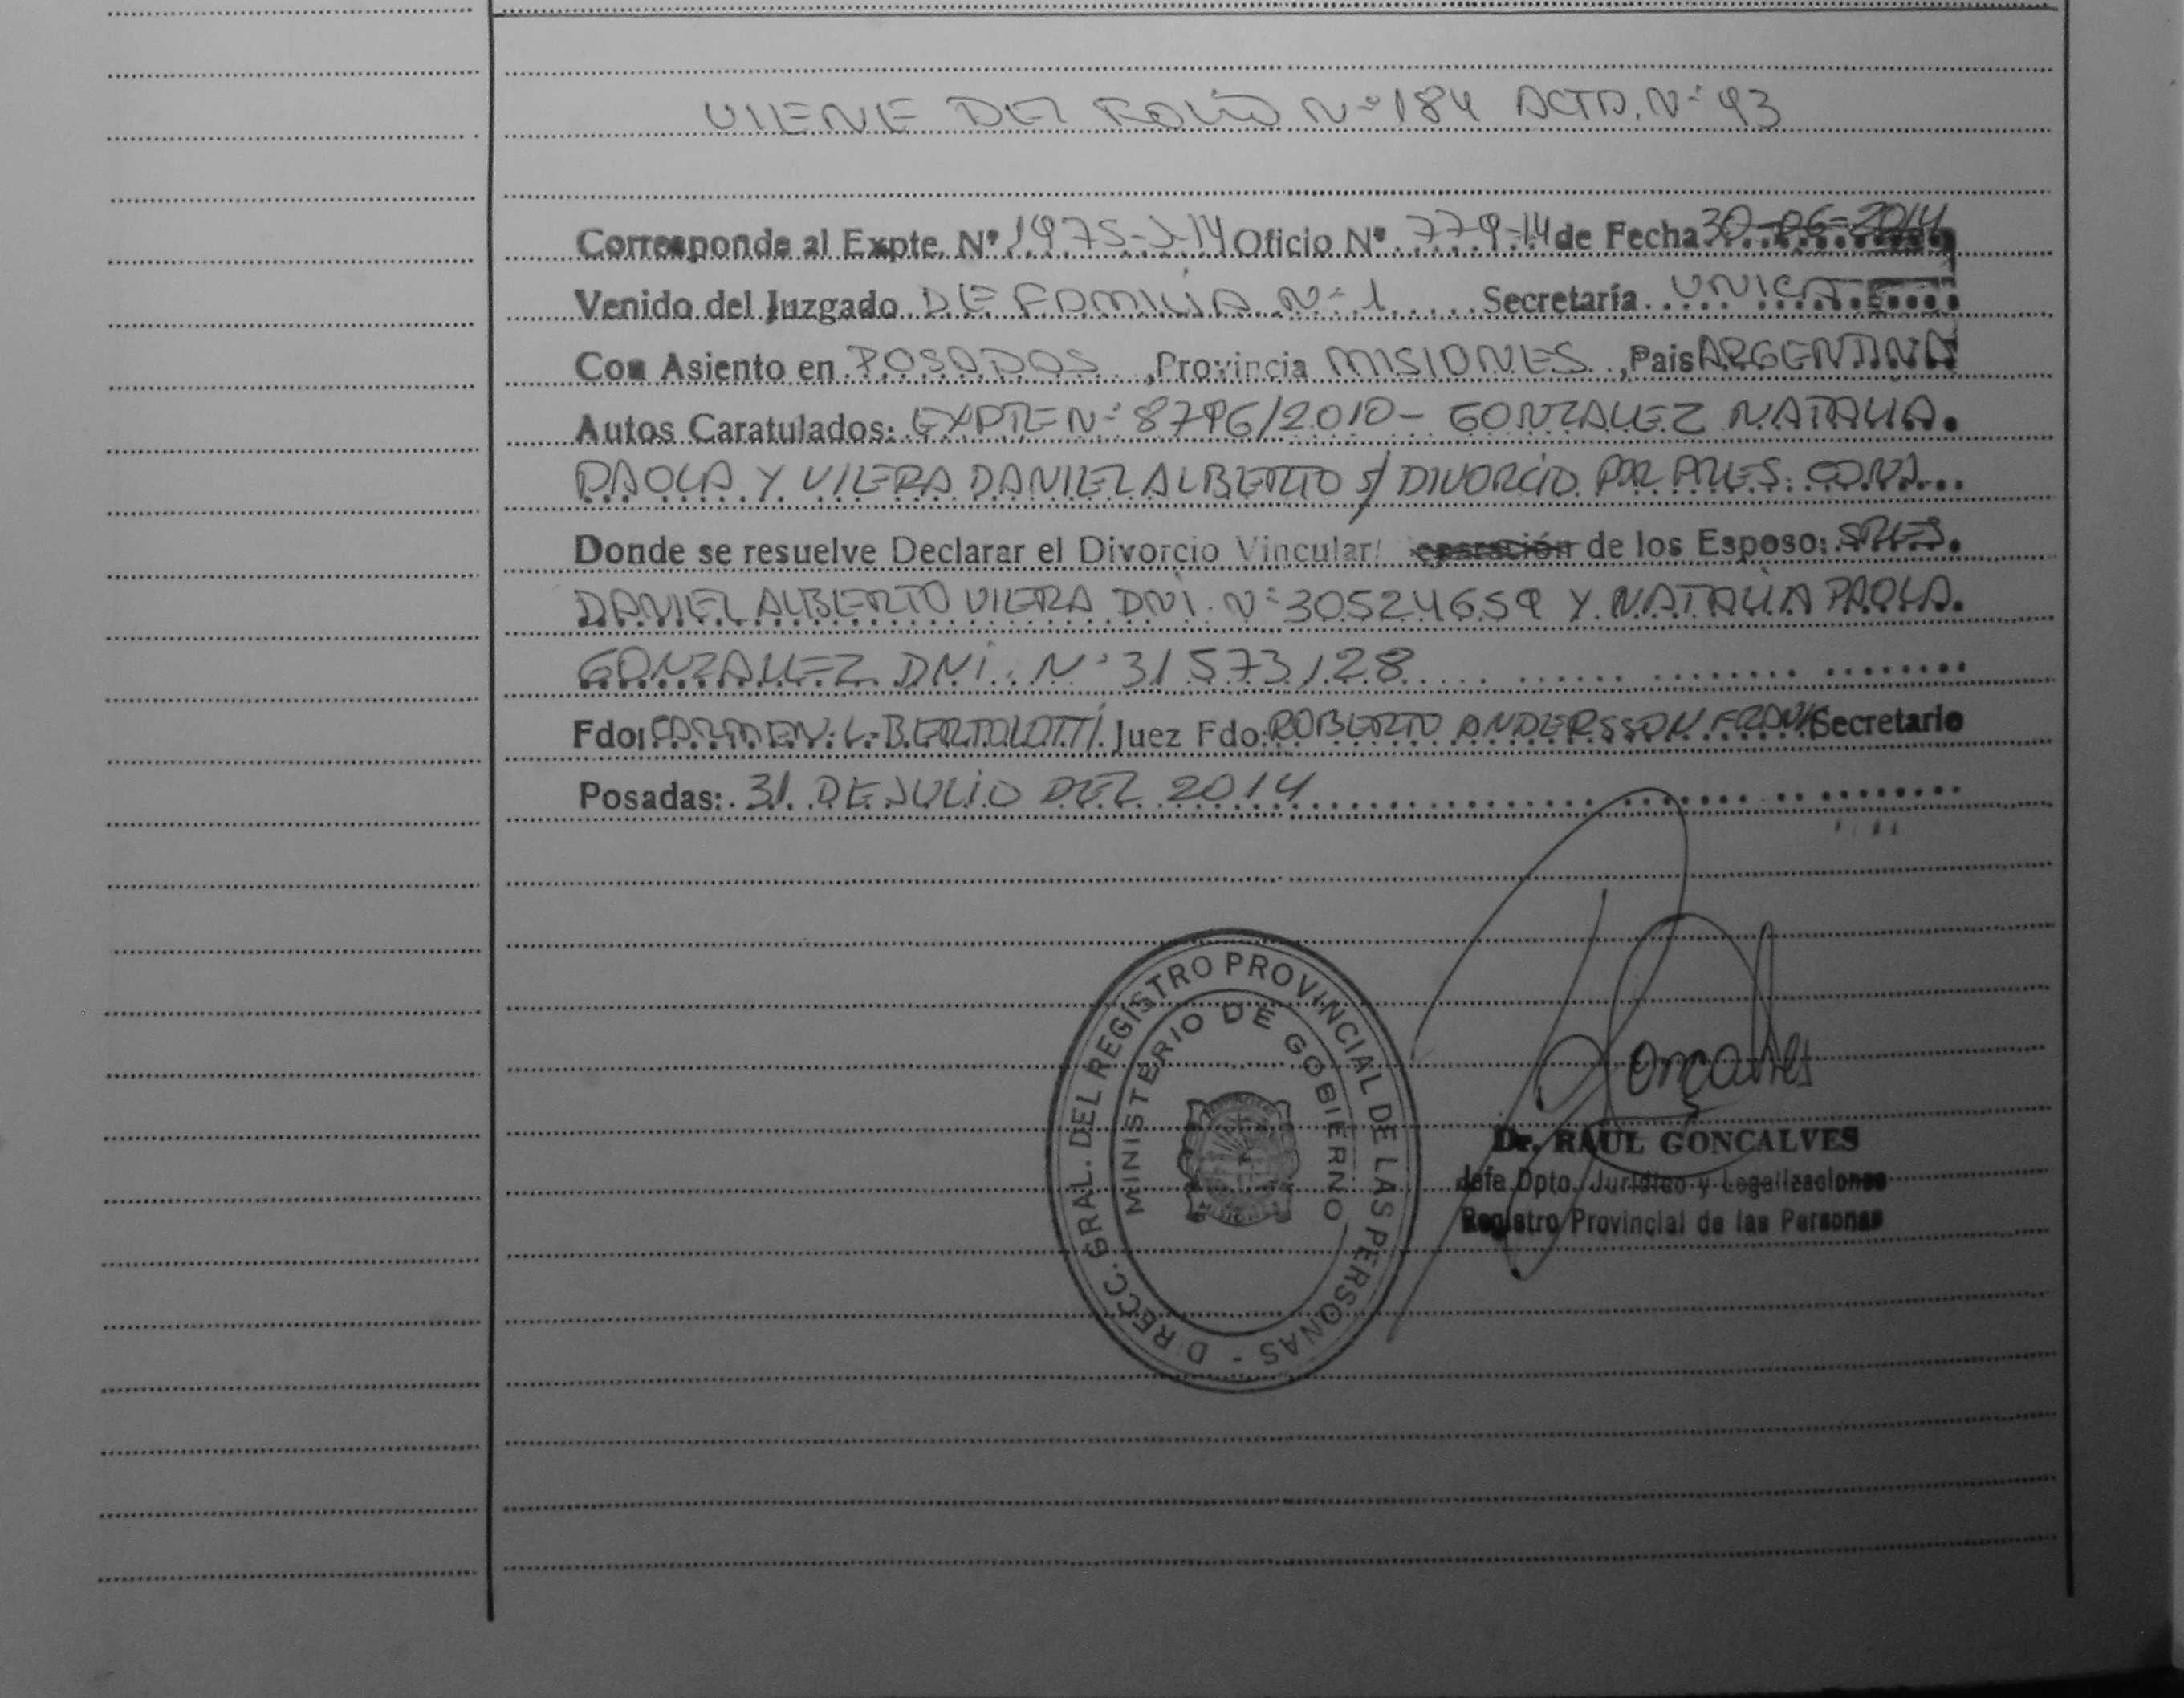 VIENE DEL FOLIO N° 184 ACTA. N° 93
Corresponde al Expte. Nº 1975-J-14 Oficio Nº 779-14 de Fecha 30-06-2014
Venido del Juzgado DE FAMILIA N° 1 Secretaría UNICA
Con Asiento en POSADAS, Provincia MISIONES, Pais ARGENTINA
Autos Caratulados: EXPTE N° 8796/2010 - GONZALEZ NATALIA
PAOLA Y VIERA DANIEL ALBERTO s/ DIVORCIO POR PRES. CONJ.
Donde se resuelve Declarar el Divorcio Vincular/ eparación de los Esposo: SRES.
DANIEL ALBERTO VIERA DNI. N° 30524659 Y NATALIA PAOLA
GONZALEZ DNI. N° 31573128
Fdo: CARMEN L. BERTOLOTTI Juez Fdo: ROBERTO ANDERSSON FRANK Secretario
Posadas: 31 DE JULIO DEL 2014
DIRECC. GRAL. DEL REGISTRO PROVINCIAL DE LAS PERSONAS -
MINISTERIO DE GOBIERNO
MISIONES
Gonçalves
Dr. RAUL GONCALVES
Jefe Dpto. Jurídico y Legalizaciones
Registro Provincial de las Personas